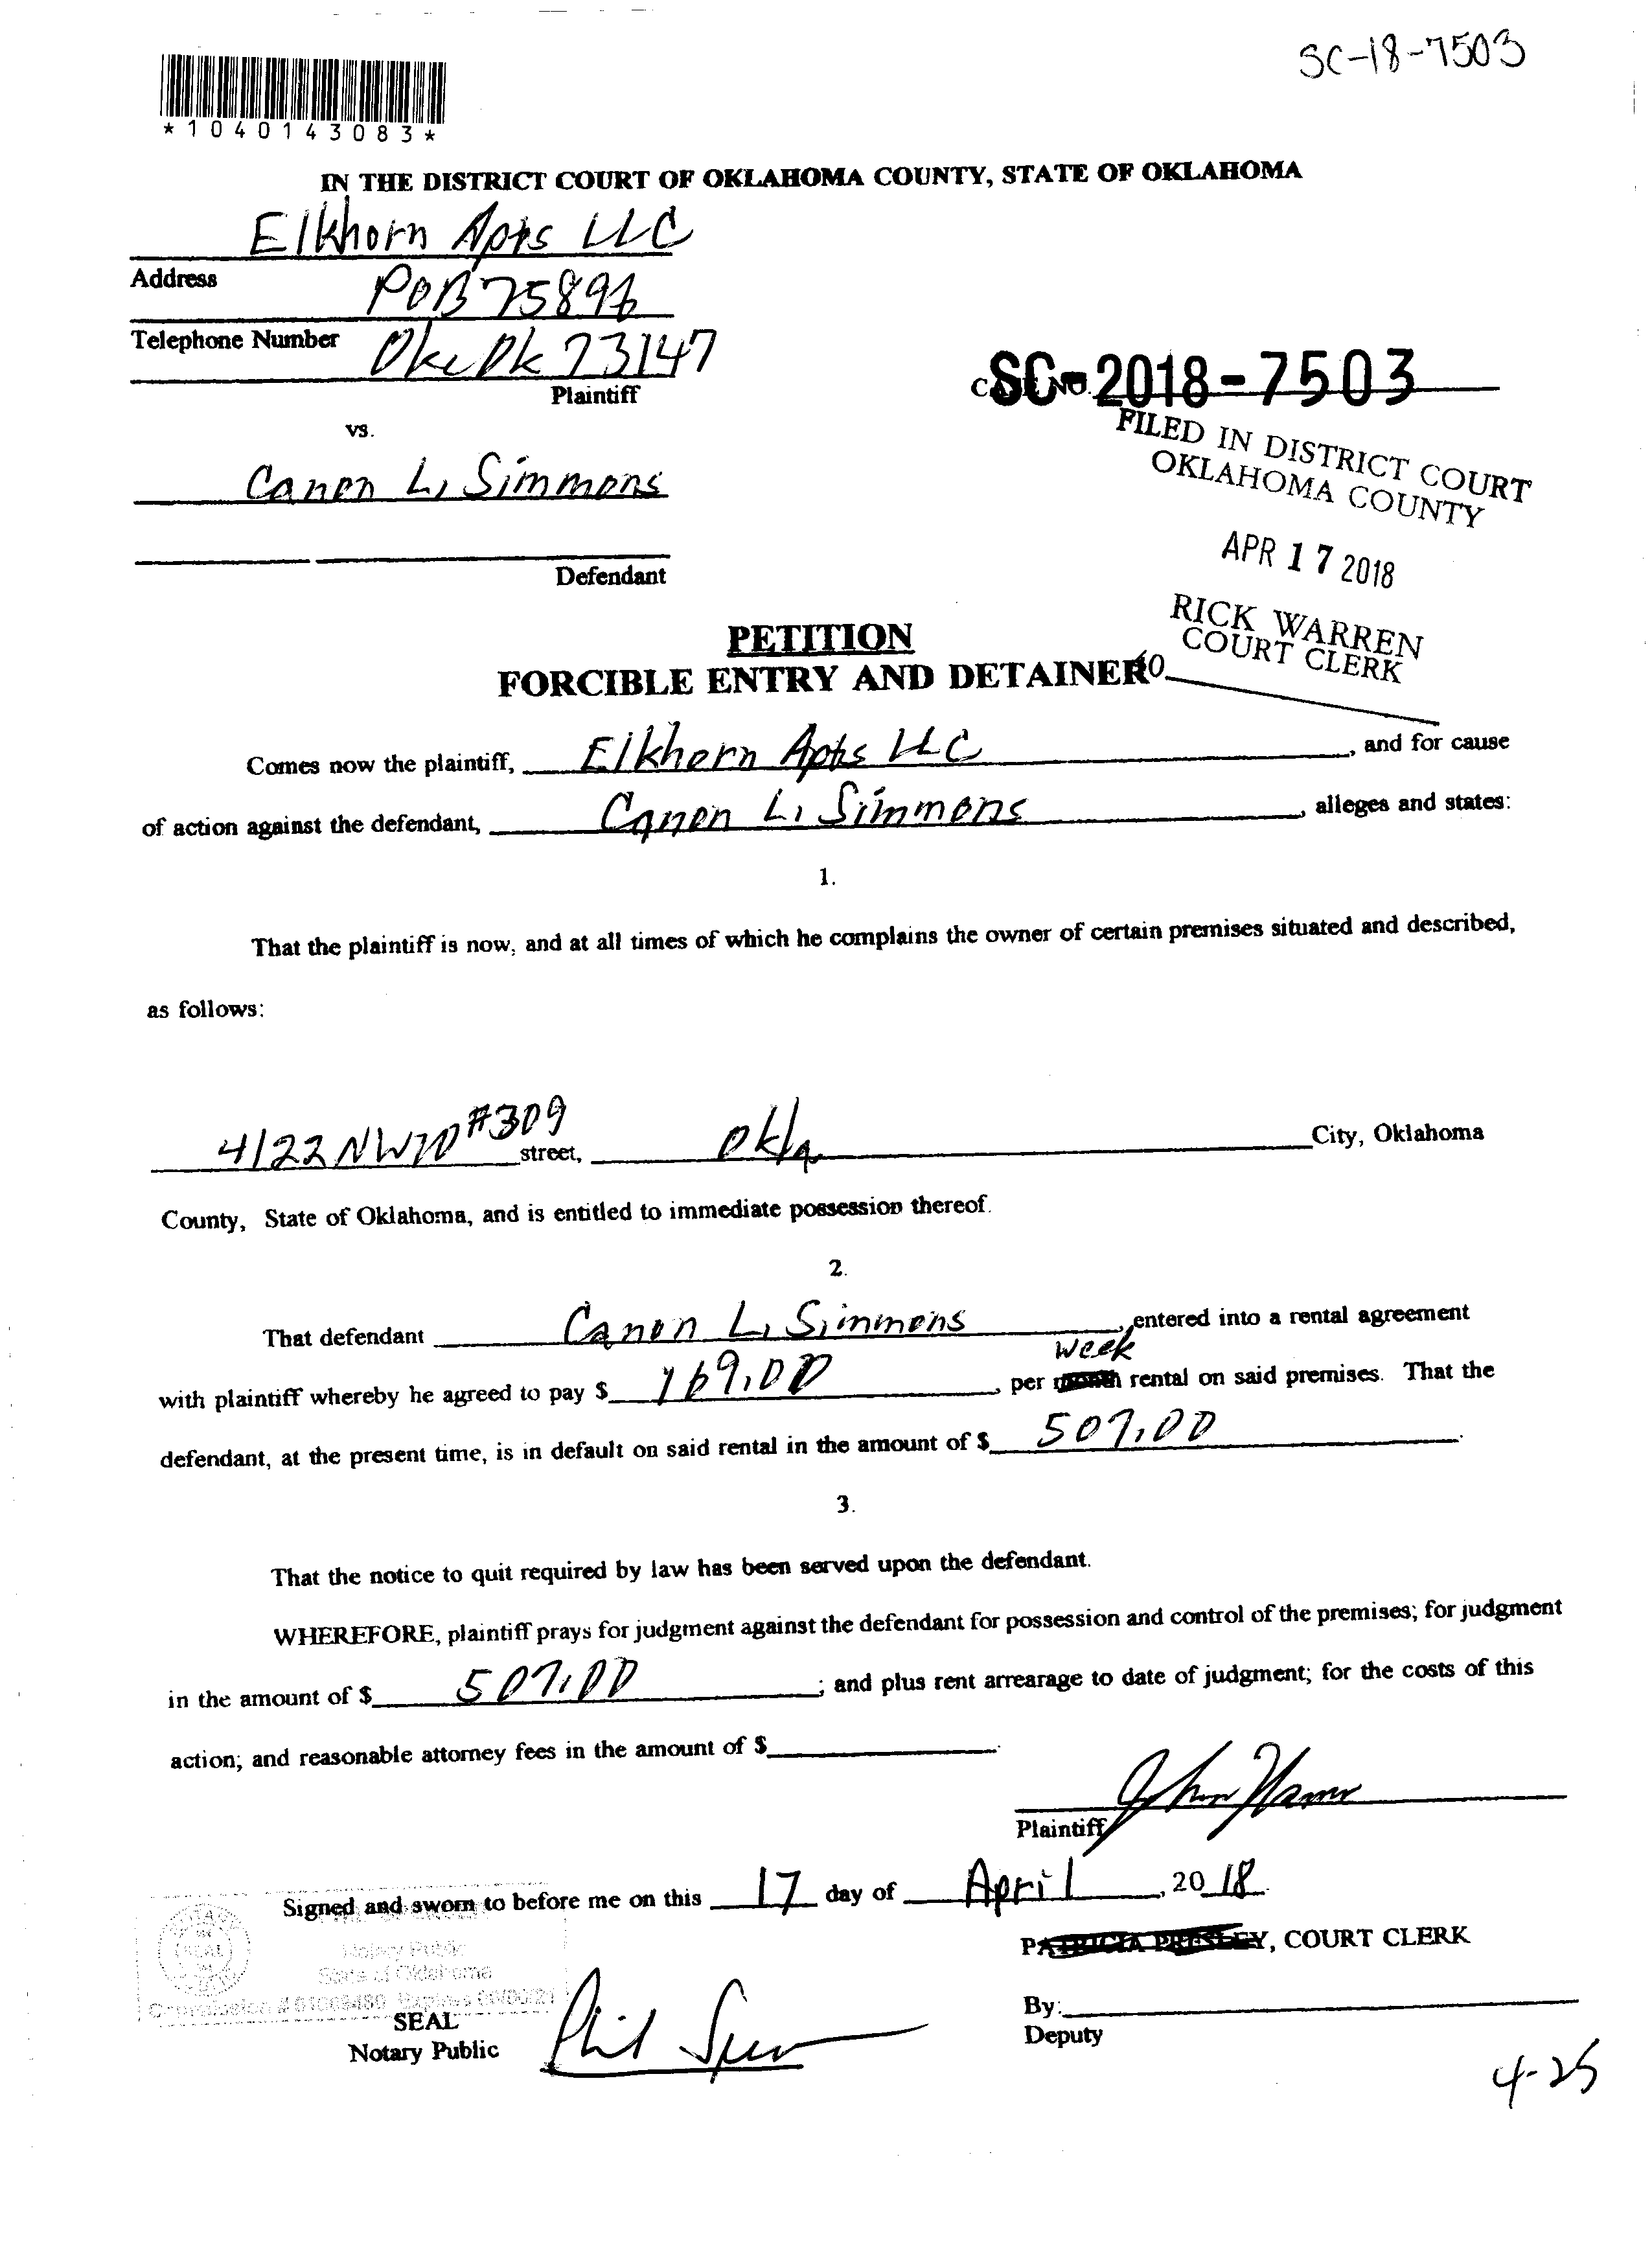 SC-18-7503
*1040143083*
IN THE DISTRICT COURT OF OKLAHOMA COUNTY, STATE OF OKLAHOMA
Elkhorn Apts LLC
Address
POB 75896
Telephone Number
Okc Ok 73147
Plaintiff
CASE NO. SC-2018-7503
vs.
FILED IN DISTRICT COURT
OKLAHOMA COUNTY
Canon L. Simmons
APR 17 2018
Defendant
RICK WARREN
COURT CLERK
PETITION
FORCIBLE ENTRY AND DETAINER
Comes now the plaintiff, Elkhorn Apts LLC, and for cause
of action against the defendant, Canon L. Simmons, alleges and states:
1.
That the plaintiff is now, and at all times of which he complains the owner of certain premises situated and described,
as follows:
4122 NW10 #309 street, Okla City, Oklahoma
County, State of Oklahoma, and is entitled to immediate possession thereof.
2.
That defendant Canon L. Simmons, entered into a rental agreement
with plaintiff whereby he agreed to pay $ 169.00, per month week rental on said premises. That the
defendant, at the present time, is in default on said rental in the amount of $ 507.00.
3.
That the notice to quit required by law has been served upon the defendant.
WHEREFORE, plaintiff prays for judgment against the defendant for possession and control of the premises; for judgment
in the amount of $ 507.00; and plus rent arrearage to date of judgment; for the costs of this
action; and reasonable attorney fees in the amount of $
Plaintiff
Signed and sworn to before me on this 17 day of April, 20 18.
PATRICIA PRESLEY, COURT CLERK
Notary Public
State of Oklahoma
SEAL
Notary Public
By:
Deputy
4-25